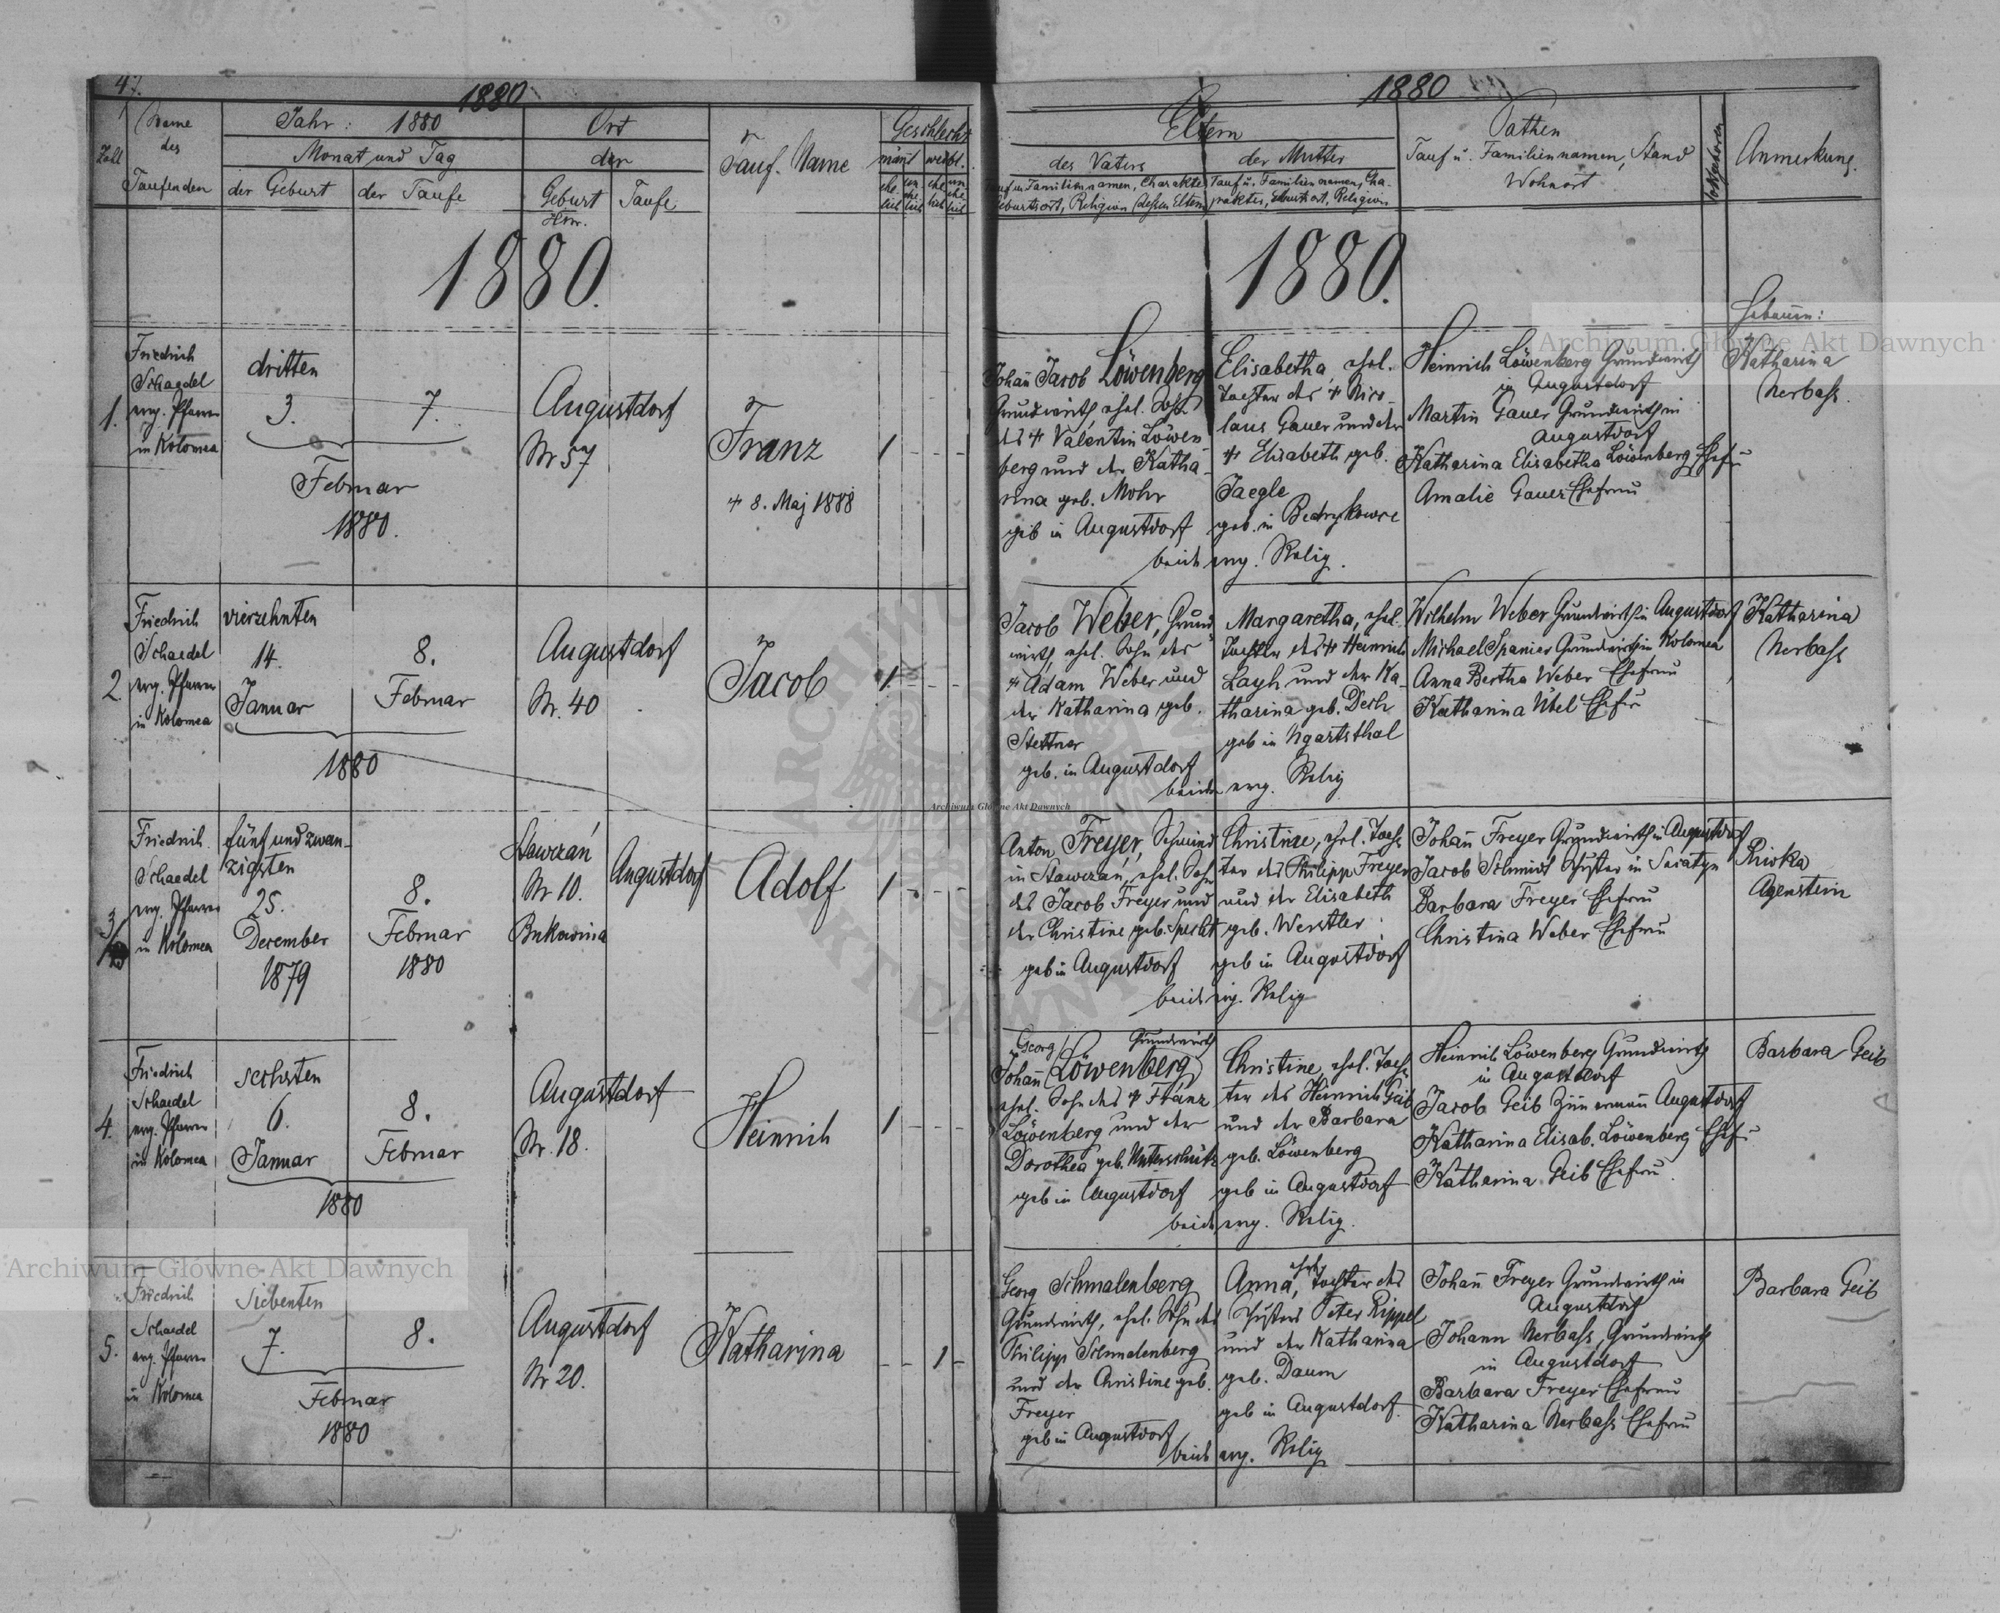 47.
1880
Zahl
Name
des
Taufenden
Jahr: 1880
Monat und Tag
der Geburt
der Taufe
Ort
der
Geburt
Hsnr.
Taufe
Tauf-Name
Geschlecht
männl.
weibl.
ehe
lich
un
ehe
lich
ehe
lich
un
ehe
lich
1880.
1.
Friedrich
Schaedel
evg. Pfarrer
in Kolomea
dritten
3.
7.
Februar
1880.
Augustdorf
Nr 57
Franz
+ 8. Maj 1888
1
2
Friedrich
Schaedel
evg. Pfarrer
in Kolomea
vierzehnten
14.
Januar
8.
Februar
1880
Augustdorf
Nr. 40
Jacob
1
3
Friedrich
Schaedel
evg. Pfarrer
in Kolomea
fünf und zwan-
zigsten
25.
December
1879
8.
Februar
1880
Stawczan
Nr 10.
Bukowina
Augustdorf
Adolf
1
4.
Friedrich
Schaedel
evg. Pfarrer
in Kolomea
sechsten
6.
Januar
8.
Februar
1880
Augustdorf
Nr. 18.
Heinrich
1
5.
Friedrich
Schaedel
evg. Pfarrer
in Kolomea
siebenten
7.
8.
Februar
1880
Augustdorf
Nr 20.
Katharina
1
1880
Eltern
des Vaters
Tauf u. Familiennamen, Charakter
Geburtsort, Religion dessen Eltern
der Mutter
Tauf u. Familiennamen, Cha-
rakter, Geburtsort, Religion
Pathen
Tauf u. Familiennamen, Stand
Wohnort
Anmerkung.
1880.
Johann Jacob Löwenberg
Grundwirth, ehel. Sohn
des + Valentin Löwen
berg und der Katha-
rina geb. Mohr
geb in Augustdorf
Elisabetha, ehel.
Tochter des + Nico-
laus Gauer und der
+ Elisabeth geb.
Jaegle
geb. in Bedrykowce
beide evg. Relig.
Heinrich Löwenberg Grundwirth
in Augustdorf
Martin Gauer Grundwirth in
Augustdorf
Katharina Elisabetha Löwenberg Ehefr
Amalie Gauer Ehefrau
Hebamme:
Katharina
Nerbass.
Jacob Weber, Grund-
wirth, ehel. Sohn des
+ Adam Weber und
der Katharina geb.
Stettner
geb. in Augustdorf
Margaretha, ehel.
Tochter des + Heinrich
Layh und der Ka-
tharina geb. Desh
geb in Ugartsthal
beide evg. Relig
Wilhelm Weber Grundwirth in Augustdorf
Michael Spanier Grundwirth in Kolomea
Anna Bertha Weber Ehefrau
Katharina Übel Ehefr
Katharina
Nerbass
Anton Freyer, Schmied
in Stawczan, ehel. Sohn
des Jacob Freyer und
der Christine geb. Specht
geb in Augustdorf
Christine, ehel. Toch-
ter des Philipp Freyer
und der Elisabeth
geb. Werstler
geb in Augustdorf
beide evg. Relig
Johann Freyer Grundwirth in Augustdorf
Jacob Schmidt Schuster in Sniatyn
Barbara Freyer Ehefrau
Christina Weber Ehefrau
Rivka
Agenstein
Georg
Grundwirth
Johann Löwenberg
ehel. Sohn des + Franz
Löwenberg und der
Dorothea geb. Unterschütz
geb in Augustdorf
Christine, ehel. Toch-
ter des Heinrich Geib
und der Barbara
geb. Löwenberg
geb in Augustdorf
beide evg. Relig.
Heinrich Löwenberg Grundwirth
in Augustdorf
Jacob Geib Zimmermann Augustdorf
Katharina Elisab. Löwenberg Ehefr
Katharina Geib Ehefrau.
Barbara Geib
Georg Schmalenberg
Grundwirth, ehel. Sohn des
Philipp Schmalenberg
und der Christine geb.
Freyer
geb in Augustdorf
Anna, ehel Tochter des
Schusters Peter Rippel
und der Katharina
geb. Daum
geb in Augustdorf.
beide evg. Relig
Johann Freyer Grundwirth in
Augustdorf
Johann Nerbass, Grundwirth
in Augustdorf
Barbara Freyer Ehefrau
Katharina Nerbass Ehefrau
Barbara Geib
Archiwum Główne Akt Dawnych
Archiwum Główne Akt Dawnych
Archiwum Główne Akt Dawnych